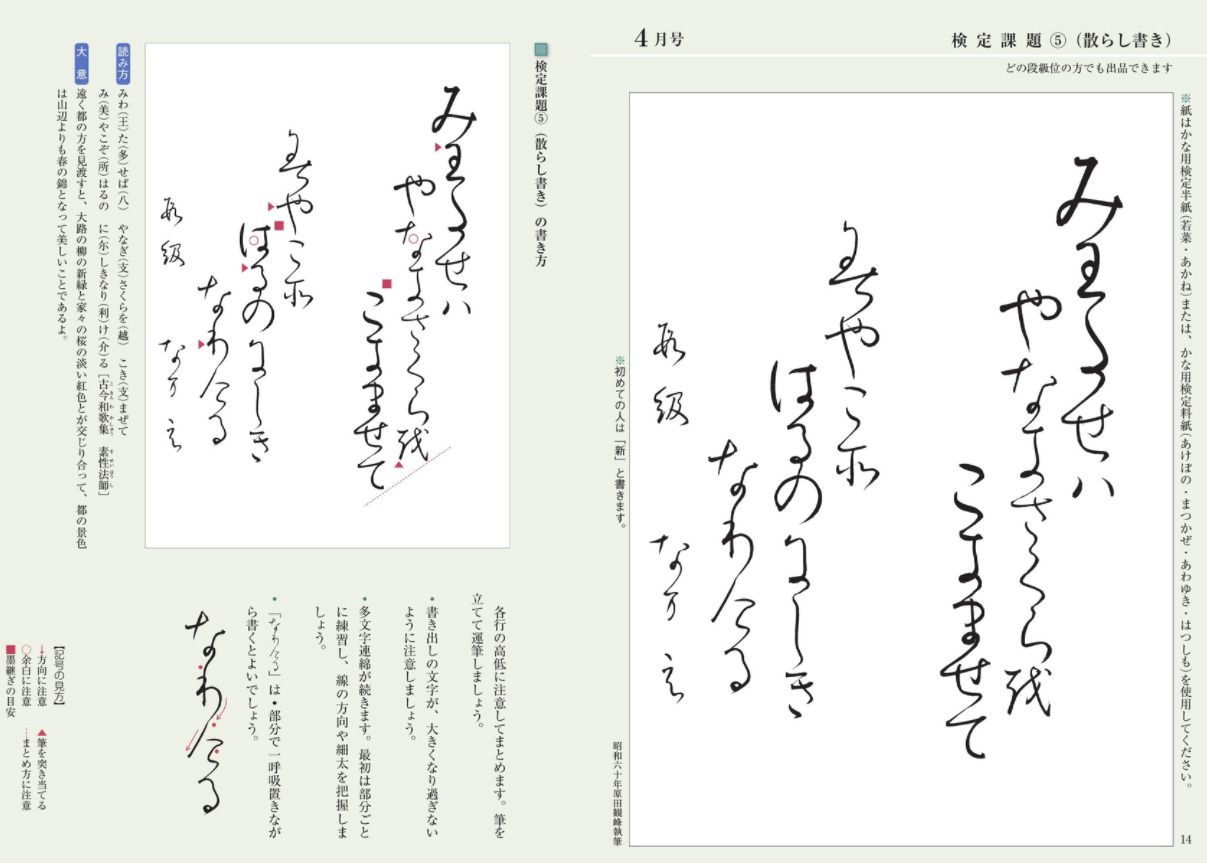 4月号
検定課題⑤（散らし書き）
どの段級位の方でも出品できます
※紙はかな用検定半紙（若菜・あかね）または、かな用検定料紙（あけぼの・まつかぜ・あわゆき・はつしも）を使用してください。
みわたせハ
やなきさくら越
こきませて
みやこ所
はるのにしき
なりける
段級
なまえ
※初めての人は「新」と書きます。
昭和六十年原田観峰執筆
14
検定課題⑤（散らし書き）の書き方
みわたせハ
やなきさくら越
こきませて
みやこ所
はるのにしき
なりける
段級
なまえ
読み方
みわ（王）た（多）せば（八）　やなぎ（支）さくらを（越）　こき（支）まぜて
み（美）やこぞ（所）はるの　に（尓）しきなり（利）け（介）る［古今和歌集　素性法師］
こきんわかしゅう　そせいほうし
大意
遠く都の方を見渡すと、大路の柳の新緑と家々の桜の淡い紅色とが交じり合って、都の景色
は山辺よりも春の錦となって美しいことであるよ。
各行の高低に注意してまとめます。筆を
立てて運筆しましょう。
・書き出しの文字が、大きくなり過ぎない
ように注意しましょう。
・多文字連綿が続きます。最初は部分ごと
に練習し、線の方向や細太を把握しま
しょう。
・「なりける」は・部分で一呼吸置きなが
ら書くとよいでしょう。
なりける
【記号の見方】
↓方向に注意　▲筆を突き当てる
○余白に注意　…まとめ方に注意
■墨継ぎの目安